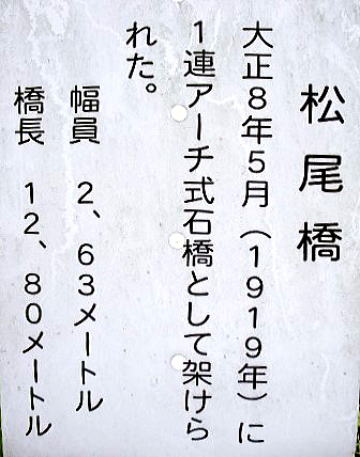 松尾橋
大正8年5月(1919年)に
1連アーチ式石橋として架けら
れた。
幅員 2、63メートル
橋長 12、80メートル